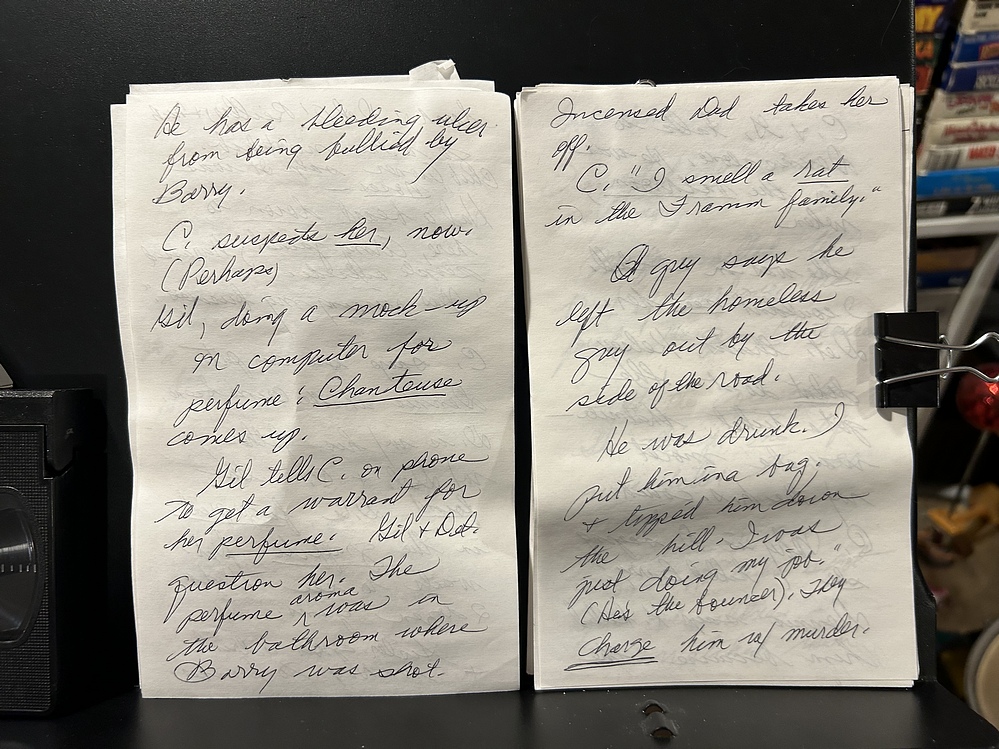 He has a bleeding ulcer
from being bullied by
Barry.
C. suspects her, now.
(Perhaps)
Gil, doing a mock-up
on computer for
perfume: Chanteuse
comes up.
Gil tells C. on phone
to get a warrant for
her perfume. Gil + Det.
question her. The
perfume aroma was in
the bathroom where
Barry was shot.
Incensed Dad takes her
off.
C. "I smell a rat
in the Framm family."
A guy says he
left the homeless
guy out by the
side of the road.
He was drunk. I
put him in a bag.
+ tipped him down
the hill. I was
just doing my job."
(He's the bouncer). They
charge him w/ murder.